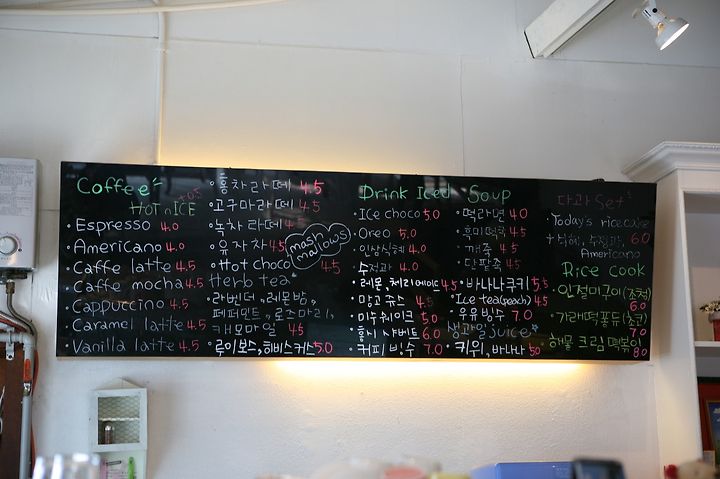 Coffee
HOT n ICE +0.5
Espresso 4.0
Americano 4.0
Caffe latte 4.5
Caffe mocha 4.5
Cappuccino 4.5
Caramel latte 4.5
Vanilla latte 4.5
홍차라떼 4.5
고구마라떼 4.5
녹차라떼 4
유자차 4.5
Hot choco 4.5
mash mallows
Herb tea
라벤더, 레몬밤,
페퍼민트, 로즈마리,
캐모마일 4.5
루이보스, 히비스커스 5.0
Drink Iced
Ice choco 5.0
Oreo 5.0
인삼식혜 4.0
수정과 4.0
레몬, 체리에이드 4.5
망고쥬스 4.5
미숫쉐이크 5.0
홍시 샤베트 6.0
커피 빙수 7.0
Soup
떡라면 4.0
흑미떡국 4.5
깨죽 4.5
단팥죽 4.5
바나나쿠키 5.5
Ice tea (peach) 4.5
우유빙수 7.0
생과일 juice
키위, 바나나 5.0
다과 Set
Today's rice cake
+ 식혜, 수정과, 6.0
Americano
Rice cook
인절미구이(조청)
6.0
가래떡퐁듀(초코)
7.0
해물 크림 떡볶이
8.0